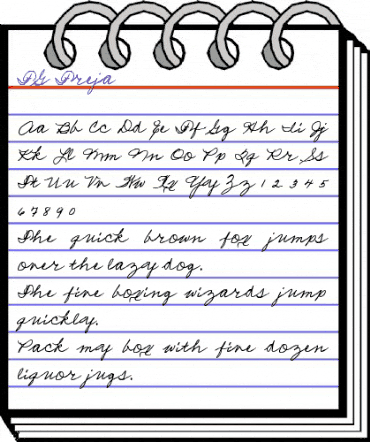 PG Preja
Aa Bb Cc Dd Ee Ff Gg Hh Ii Jj
Kk Ll Mm Nn Oo Pp Qq Rr Ss
Tt Uu Vv Ww Xx Yy Zz 1 2 3 4 5
6 7 8 9 0
The quick brown fox jumps
over the lazy dog.
The five boxing wizards jump
quickly.
Pack my box with five dozen
liquor jugs.